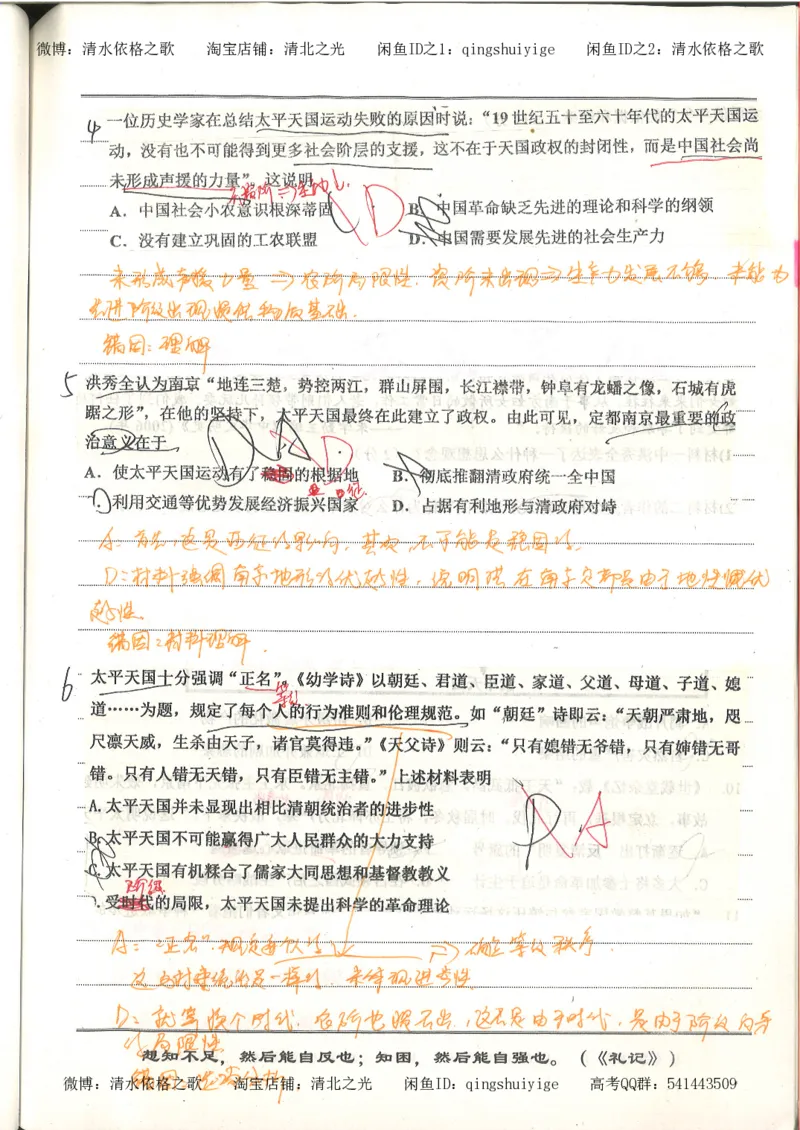 微博：清水依格之歌 淘宝店铺：清北之光 闲鱼ID之1：qingshuiyige 闲鱼ID之2：清水依格之歌
4 一位历史学家在总结太平天国运动失败的原因时说：“19世纪五十至六十年代的太平天国运
动，没有也不可能得到更多社会阶层的支援，这不在于天国政权的封闭性，而是中国社会尚
未形成声援的力量”。这说明
A．中国社会小农意识根深蒂固 B．中国革命缺乏先进的理论和科学的纲领
D
C．没有建立巩固的工农联盟 D．中国需要发展先进的社会生产力
未形成声援力量⇒农阶局限性，资阶未出现⇒生产力发展不够，未能为
先进阶级出现提供物质基础．
错因：理解
5 洪秀全认为南京“地连三楚，势控两江，群山屏围，长江襟带，钟阜有龙蟠之像，石城有虎
踞之形”，在他的坚持下，太平天国最终在此建立了政权。由此可见，定都南京最重要的政
治意义在于
D
A．使太平天国运动有了稳固的根据地 B．彻底推翻清政府统一全中国
利用交通等优势发展经济振兴国家 D．占据有利地形与清政府对峙
D：材料强调南京地形的优越性，说明洪在南京定都是由于地理优
越性．
错因：材料理解．
6 太平天国十分强调“正名”。《幼学诗》以朝廷、君道、臣道、家道、父道、母道、子道、媳
道……为题，规定了每个人的行为准则和伦理规范。如“朝廷”诗即云：“天朝严肃地，咫
尺凛天威，生杀由天子，诸官莫得违。”《天父诗》则云：“只有媳错无爷错，只有婶错无哥
错。只有人错无天错，只有臣错无主错。”上述材料表明
A.太平天国并未显现出相比清朝统治者的进步性
D A
B.太平天国不可能赢得广大人民群众的大力支持
C.太平天国有机糅合了儒家大同思想和基督教教义
阶级
受时代的局限，太平天国未提出科学的革命理论
A：“正名”．规定每个人的 ⇒ 确立等级秩序．
D：就算换个时代，农阶也提不出，这不是由于时代，是由于阶级内身
的局限性
想知不足，然后能自反也；知困，然后能自强也。（《礼记》）
微博：清水依格之歌 淘宝店铺：清北之光 闲鱼ID：qingshuiyige 高考QQ群：541443509